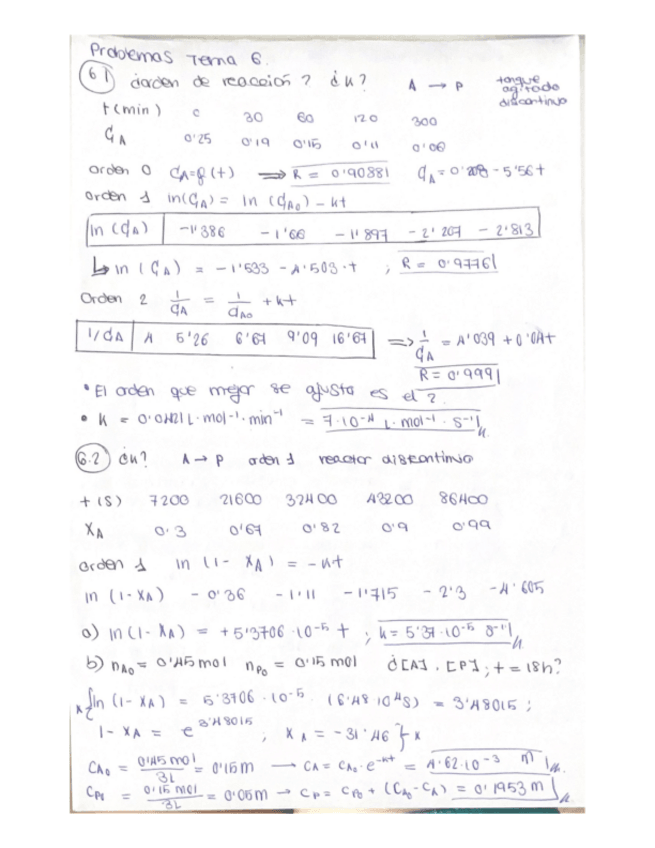 Problemas Tema 6.
6.1 ¿orden de reacción? ¿k? A → P tanque agitado discontinuo
t (min) 0 30 60 120 300
CA 0'25 0'19 0'15 0'11 0'06
orden 0 CA = f(t) ⟹ R = 0'90881 CA = 0'208 - 5'56 t
orden 1 ln(CA) = ln(CA0) - kt
ln (CA) -1'386 -1'66 -1'897 -2'207 -2'813
↳ ln (CA) = -1'533 - 4'503·t ; R = 0'9776
Orden 2 1/CA = 1/CA0 + kt
1/CA 4 5'26 6'67 9'09 16'67 ⟹ 1/CA = 4'039 + 0'04t
R = 0'9991
• El orden que mejor se ajusta es el 2.
• K = 0'0421 L·mol⁻¹·min⁻¹ = 7·10⁻⁴ L·mol⁻¹·s⁻¹
6.2 ¿k? A → P orden 1 reactor discontinuo
t (s) 7200 21600 32400 43200 86400
XA 0'3 0'67 0'82 0'9 0'99
orden 1 ln (1 - XA) = -kt
ln (1-XA) -0'36 -1'11 -1'715 -2'3 -4'605
a) ln (1-XA) = +5'3706·10⁻⁵ t ; k = 5'37·10⁻⁵ s⁻¹
b) nA0 = 0'45 mol nP0 = 0'15 mol ¿[A], [P]; t = 18h?
x { ln (1-XA) = 5'3706·10⁻⁵ (6'48·10⁴s) = 3'48015 ;
1 - XA = e^3'48015 ; XA = -31'46 } x
CA0 = 0'45 mol / 3L = 0'15 M → CA = CA0·e^-kt = 4'62·10⁻³ M
CP0 = 0'15 mol / 3L = 0'05 M → CP = CP0 + (CA0 - CA) = 0'1953 M